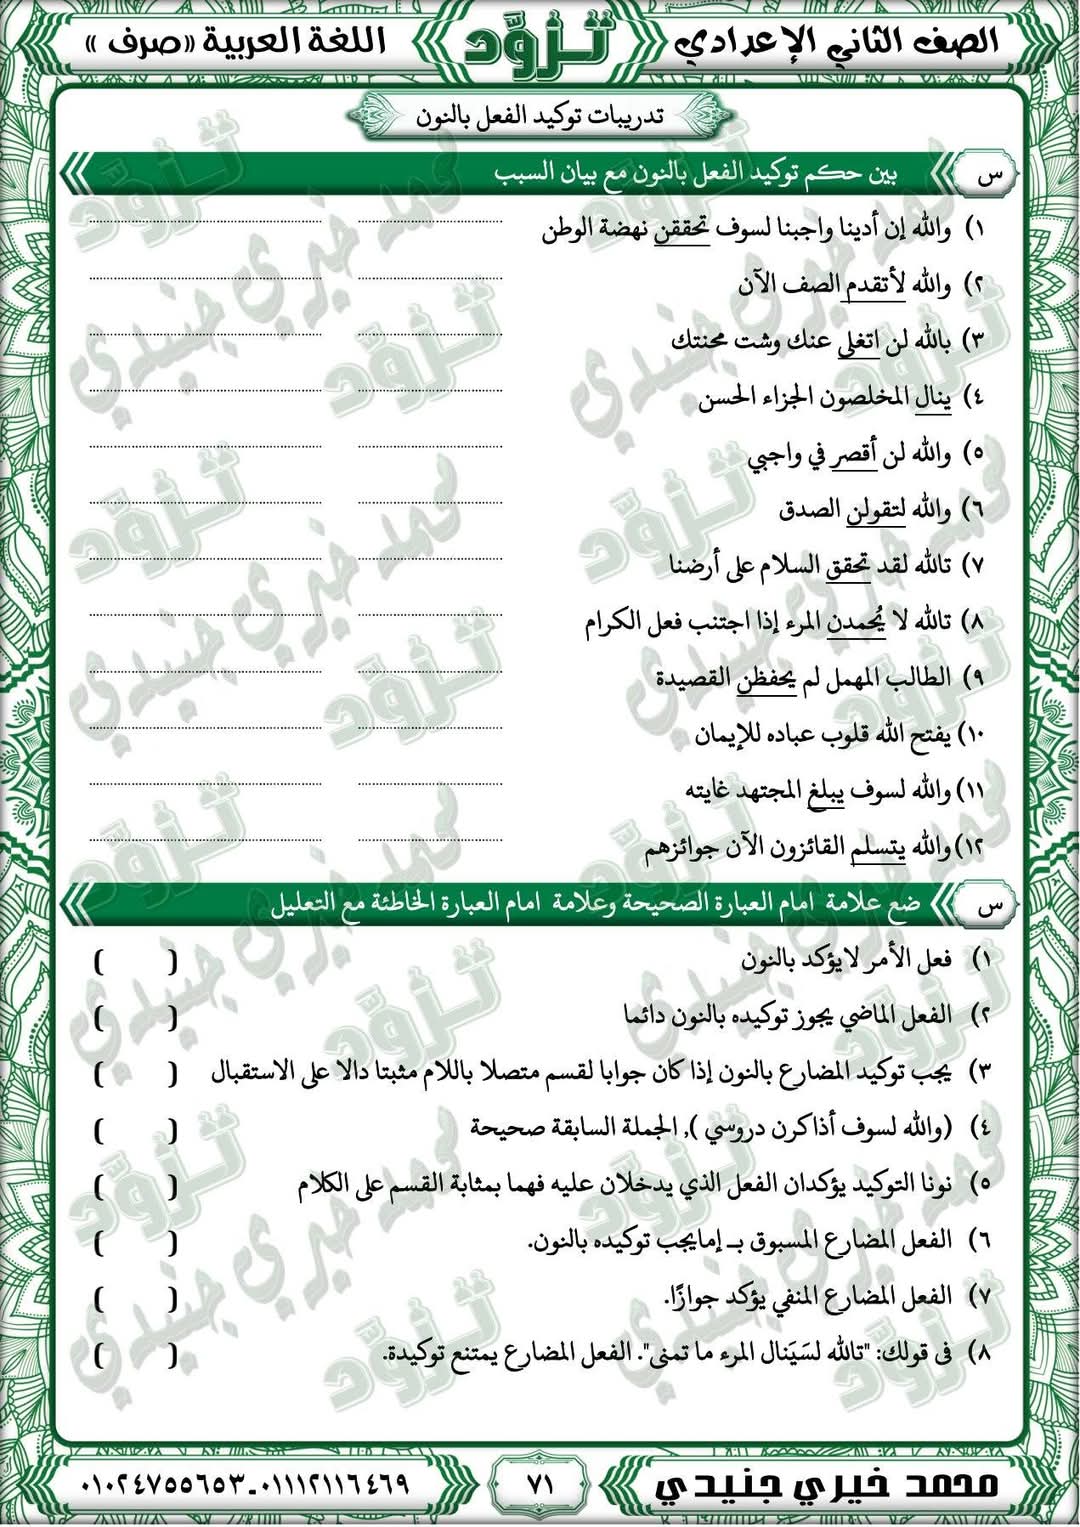 الصف الثاني الإعدادي
تزوَّد
اللغة العربية «صرف »
تدريبات توكيد الفعل بالنون
س
بين حكم توكيد الفعل بالنون مع بيان السبب
١) والله إن أدينا واجبنا لسوف تحققن نهضة الوطن
٢) والله لأتقدم الصف الآن
٣) بالله لن اتغلى عنك وشت محنتك
٤) ينال المخلصون الجزاء الحسن
٥) والله لن أقصر في واجبي
٦) والله لتقولن الصدق
٧) تالله لقد تحقق السلام على أرضنا
٨) تالله لا يُحمدن المرء إذا اجتنب فعل الكرام
٩) الطالب المهمل لم يحفظن القصيدة
١٠) يفتح الله قلوب عباده للإيمان
١١) والله لسوف يبلغ المجتهد غايته
١٢) والله يتسلم القائزون الآن جوائزهم
س
ضع علامة امام العبارة الصحيحة وعلامة امام العبارة الخاطئة مع التعليل
١) فعل الأمر لا يؤكد بالنون ( )
٢) الفعل الماضي يجوز توكيده بالنون دائما ( )
٣) يجب توكيد المضارع بالنون إذا كان جوابا لقسم متصلا باللام مثبتا دالا على الاستقبال ( )
٤) (والله لسوف أذاكرن دروسي ), الجملة السابقة صحيحة ( )
٥) نونا التوكيد يؤكدان الفعل الذي يدخلان عليه فهما بمثابة القسم على الكلام ( )
٦) الفعل المضارع المسبوق بـ إمايجب توكيده بالنون. ( )
٧) الفعل المضارع المنفي يؤكد جوازًا. ( )
٨) فى قولك: "تالله لسَيَنال المرء ما تمنى". الفعل المضارع يمتنع توكيدة. ( )
محمد خيري جنيدي
٧١
٠١٠٢٤٧٥٥٦٥٣-٠١١١٢١١٦٤٦٩